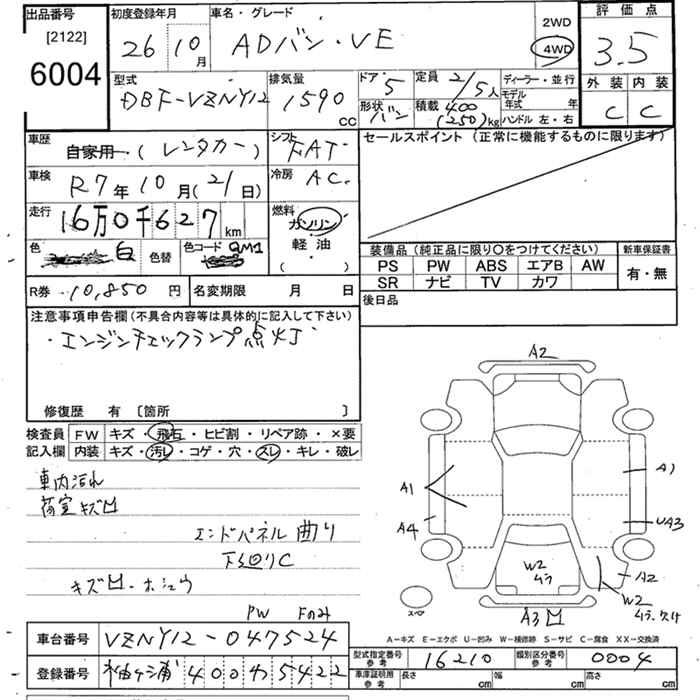 出品番号
[2122]
6004
初度登録年月
26 10月
車名・グレード
ADバン・VE
2WD
4WD
評価点
3.5
外装 内装
C C
型式
DBF-VZNY12
排気量
1590 cc
ドア 5
形状 バン
定員 2/5人
積載 400 (250)kg
ディーラー・並行
モデル年式 年
ハンドル 左・右
車歴
自家用・(レンタカー)
シフト
FAT
セールスポイント(正常に機能するものに限ります)
車検
R7年10月(21日)
冷房
AC
走行
16万0千627km
燃料
ガソリン
軽油
( )
色 白 色替
色コード QM1
装備品(純正品に限り○をつけてください)
PS PW ABS エアB AW
SR ナビ TV カワ
新車保証書
有・無
R券 10,850 円
名変期限 月 日
後日品
注意事項申告欄(不具合内容等は具体的に記入して下さい)
・エンジンチェックランプ点灯
修復歴 有 [箇所 ]
検査員記入欄
FW キズ・飛石・ヒビ割・リペア跡・×要
内装 キズ・汚レ・コゲ・穴・スレ・キレ・破レ
車内汚れ
荷室キズ凹
エンドパネル曲り
下回りC
キズ凹・ホシュウ
PW Fのみ
A2
A1
A4
A1
UA3
A2
W2
W2
A3凹
スペア
A-キズ E-エクボ U-凹み W-補修跡 S-サビ C-腐食 XX-交換済
車台番号
VZNY12-047524
登録番号
袖ヶ浦400わ5422
型式指定番号 参考 16210
類別区分番号 参考 0004
車庫証明用 参考
長さ cm 幅 cm 高さ cm